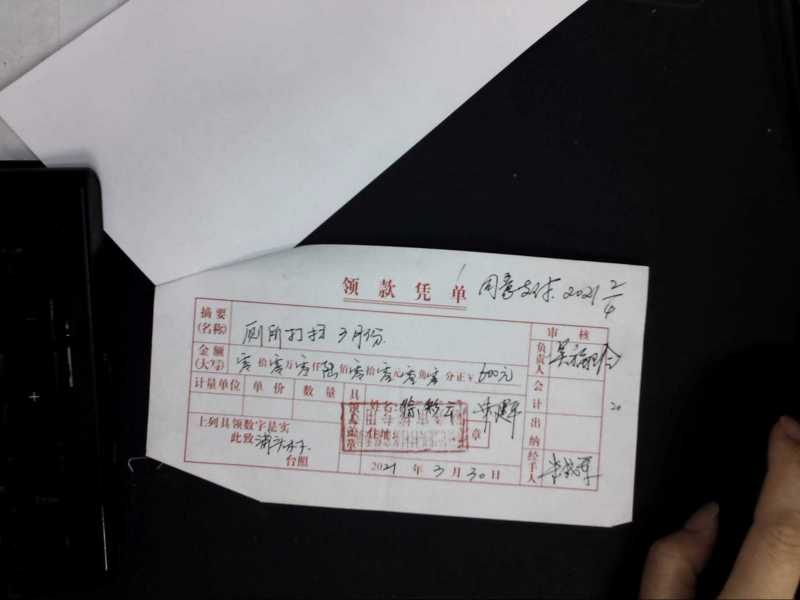 领款凭单 同意支付 2021 2/4
摘要(名称) 厕所打扫 3月份 审核
金额(大写) 零拾零万零仟陆佰零拾零元零角零分正￥600元 负责人
计量单位 单价 数量 具领人盖章 姓名: 会计
上列具领数字是实 住址: 章 出纳
此致
台照 2021年3月30日 经手人
20